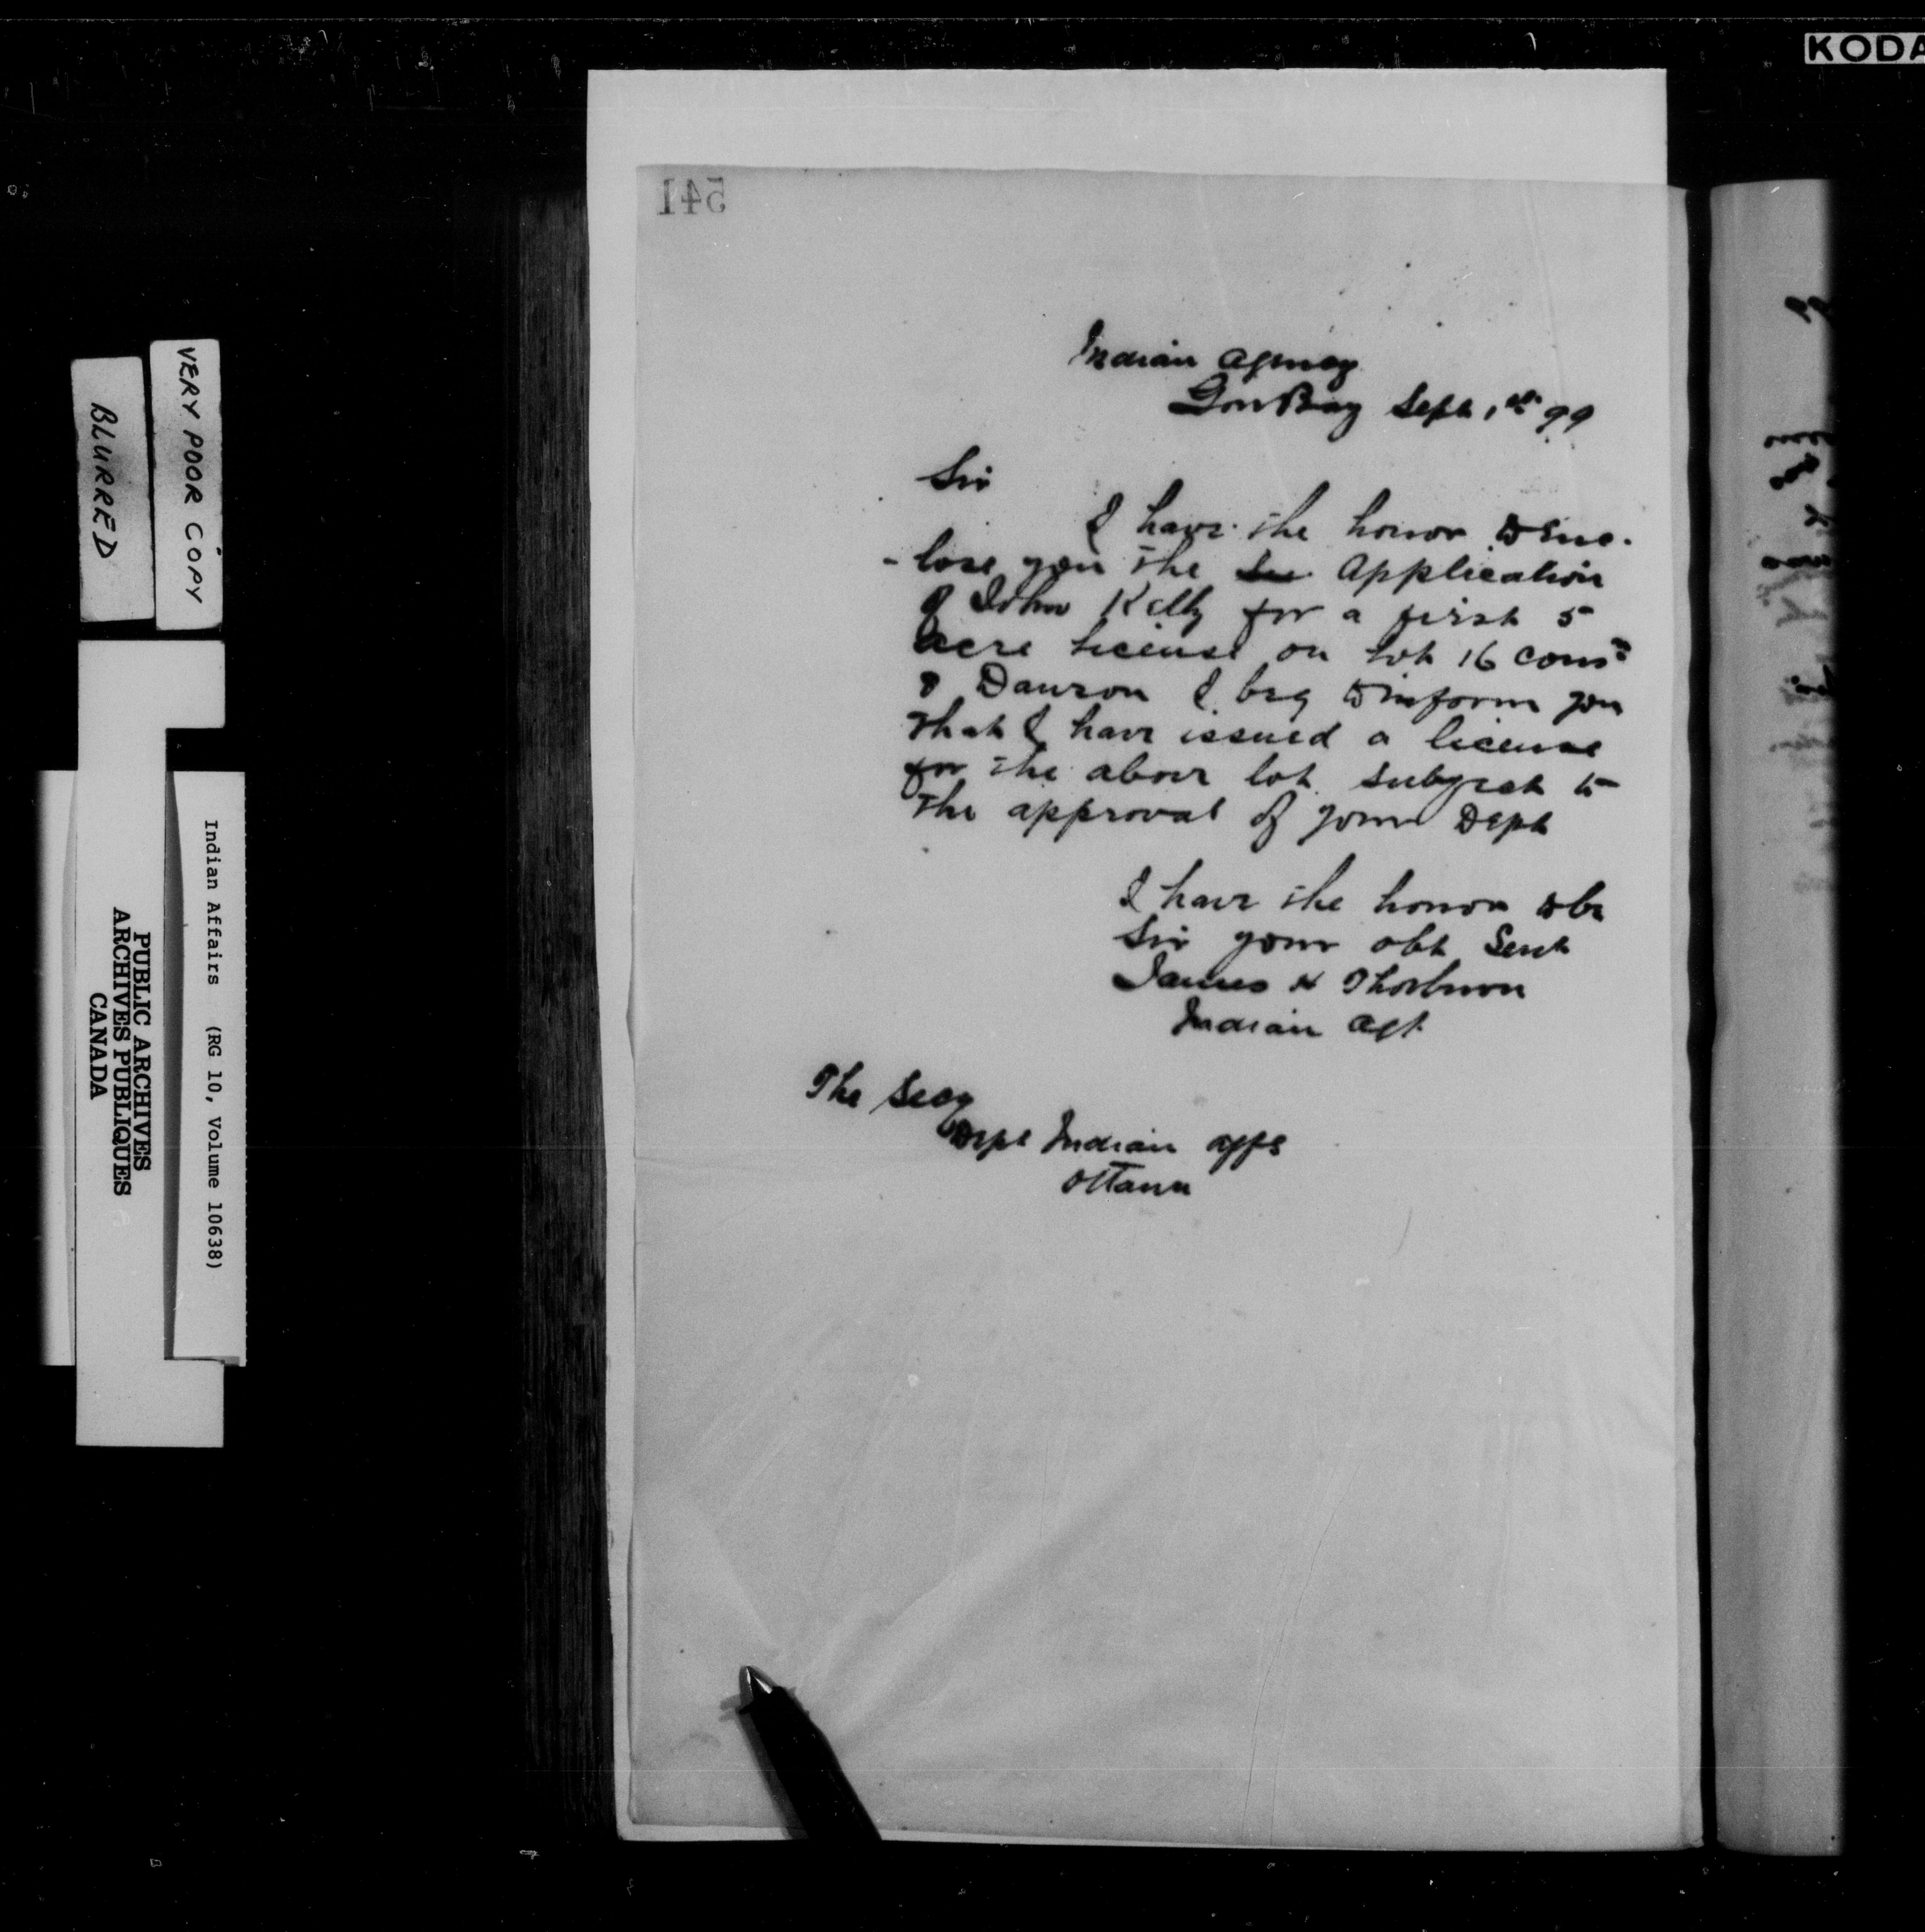 KODA
541
Indian Agency
Gore Bay Sept 1st 99
Sir
I have the honor to enc-
-lose you the Application
of John Kelly for a first 5
Acre license on Lot 16 Con
of Dawson I beg to inform you
that I have issued a license
for the above lot subject to
the approval of your Dept
I have the honor to be
Sir your obt Servt
James H Thorburn
Indian Agt
The Secy
Dept Indian Affs
Ottawa
VERY POOR COPY
BLURRED
Indian Affairs (RG 10, Volume 10638)
PUBLIC ARCHIVES
ARCHIVES PUBLIQUES
CANADA